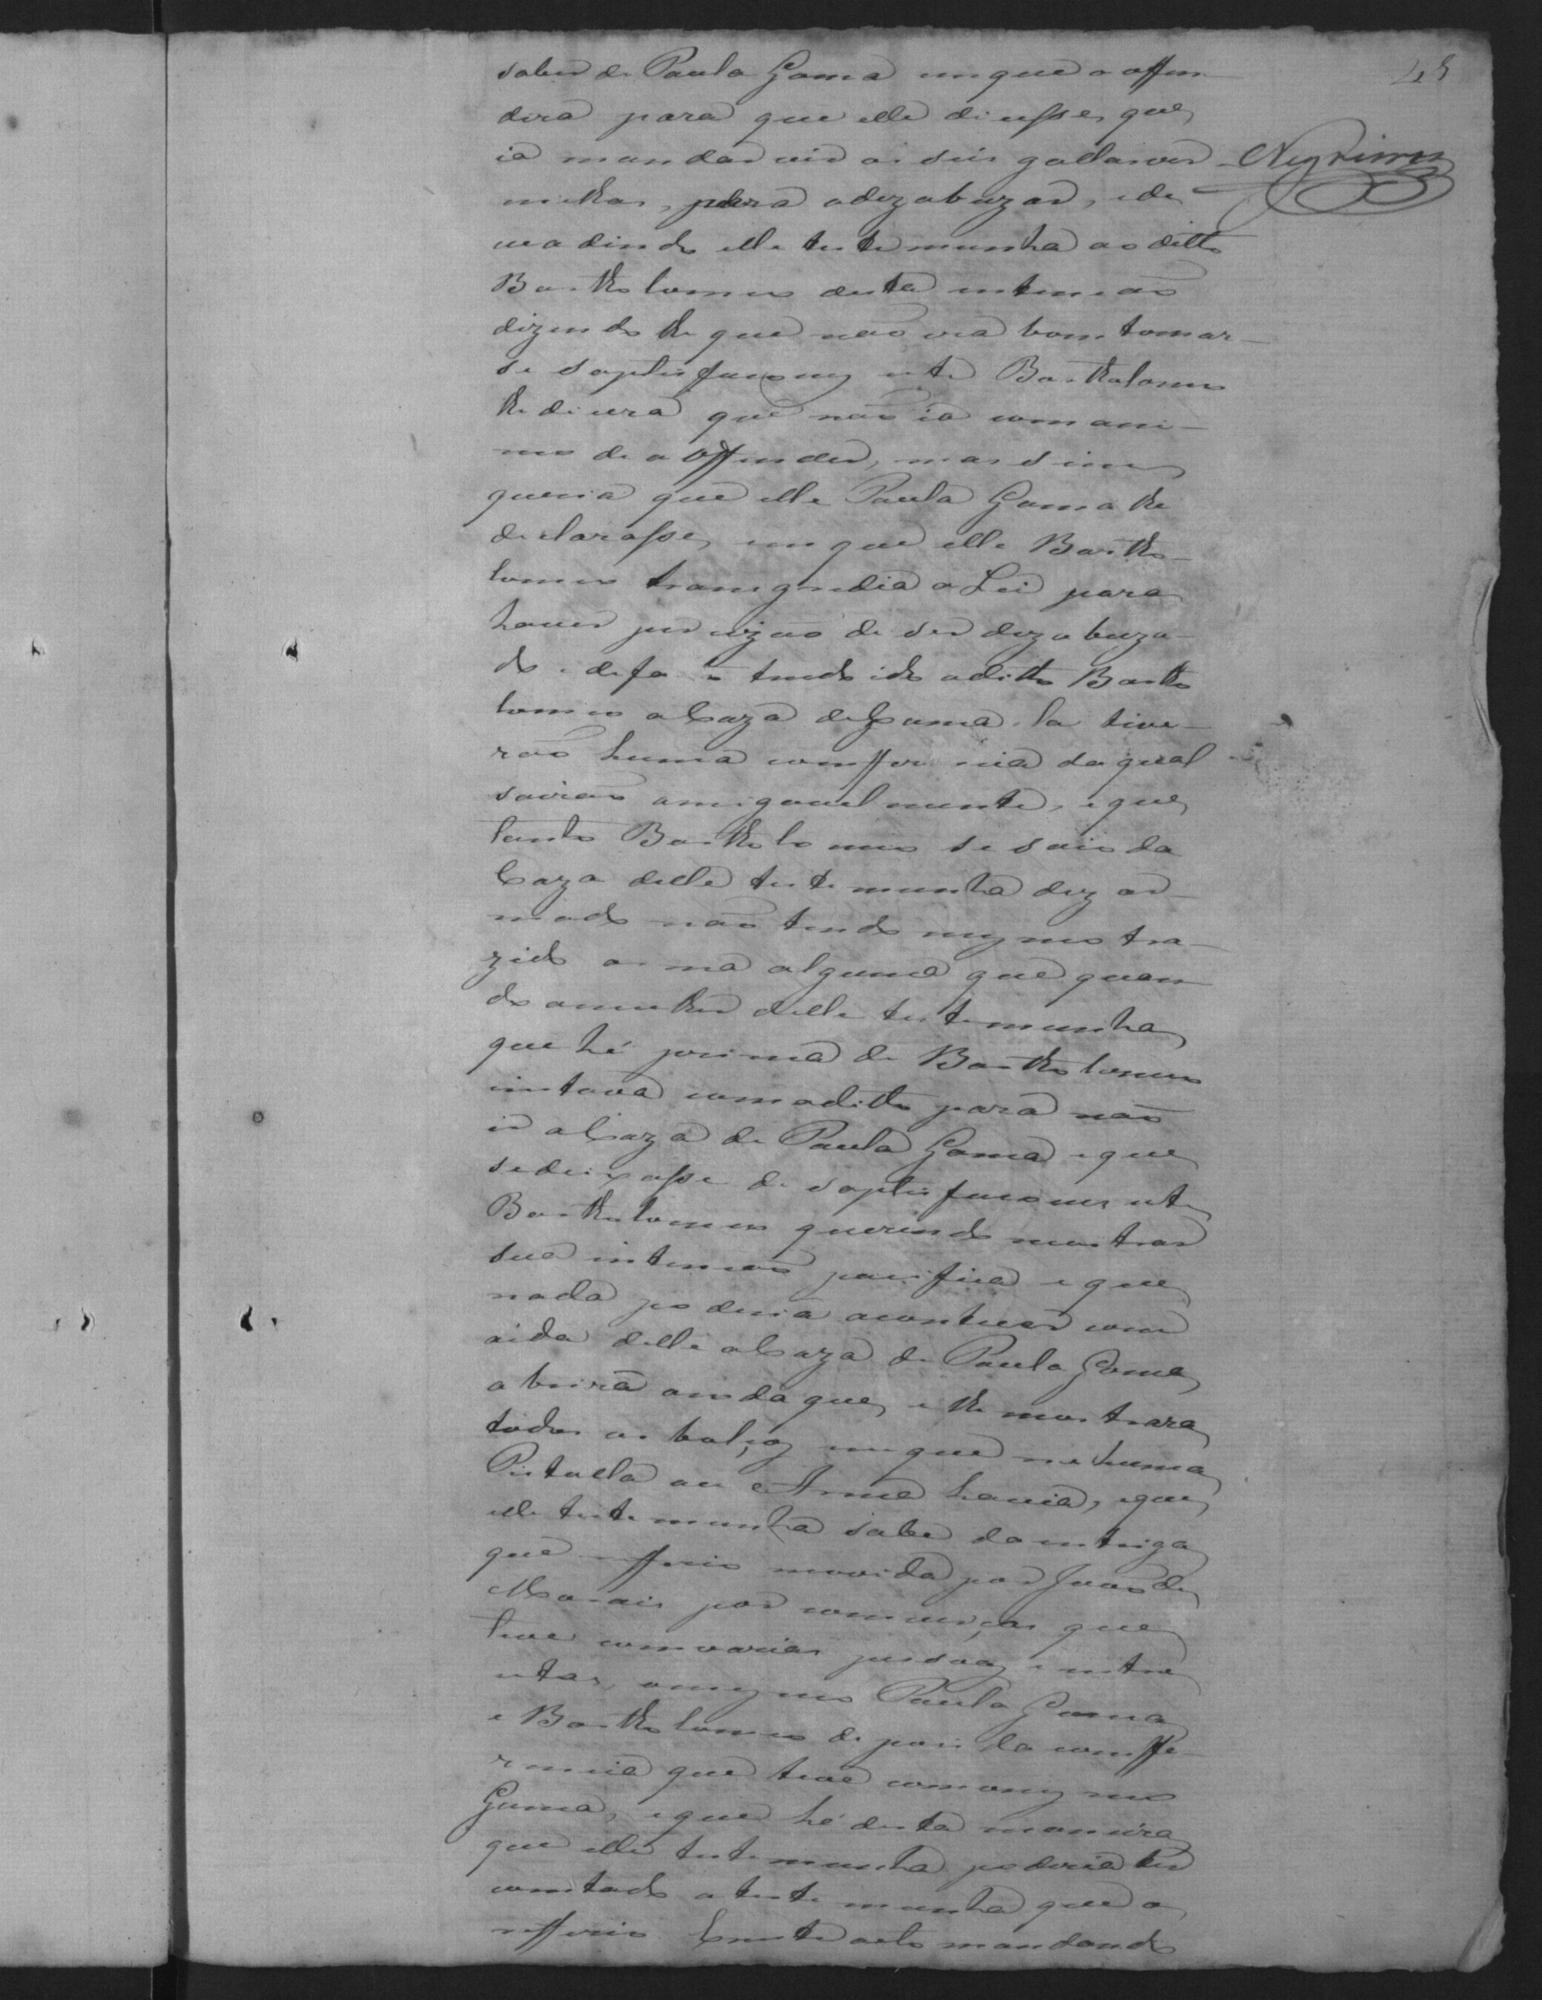 45
Negrimm
saber de Paula Gama em que o offen
dera para que elle dicesse, que
ia mandar vir os seis gallarver
melhos, para o dezabuzar, e de
vadindo elle testemunha ao ditto
Bartholomeo desta intencão
dizendo lhe que não era bom tomar-
se saptisfacoens, este Bartholomeo
lhe dicera que não ia com ani-
mo de o offender, mas sim
queria que elle Paula Gama lhe
declarasse, em que elle Bartho-
lomeo transgredia a Lei para
haver percizão de ser dezabuza-
do e de fa to tendo ido o ditto Bartho
lomeo a Caza de Gama, la tive-
rão huma comfferencia da qual
sairão amigavelmente, e que
tanto Bartholomeo se saio da
Caza delle testemunha dezar-
mado não tendo mesmo tra-
zido arma alguma que quan-
do a mulher delle testemunha
que hé prima de Bartholomeo
instava com o ditto para não
ir a Caza de Paula Gama e que
se deixasse de saptisfacoens este
Bartholomeo querendo mostrar
sua intencão pacifica e que
nada poderia acontecer com
a ida delle a Caza de Paula Gama
abrira a e lhe mostrara
todos os bolços em que nehuma
Pistolla ou Arma havia, e que
elle testemunha sabe da intriga
que refferio movida por João de
Morais por comverças que
teve com varias pessoas, e entre
estas, o mesmo Paula Gama
e Bartholomeo depois da comffe-
rencia que teve com o mesmo
Gama, e que hé desta maneira
que elle testemunha poderia ter
contado a testemunha que o
refferio. E neste acto mandando